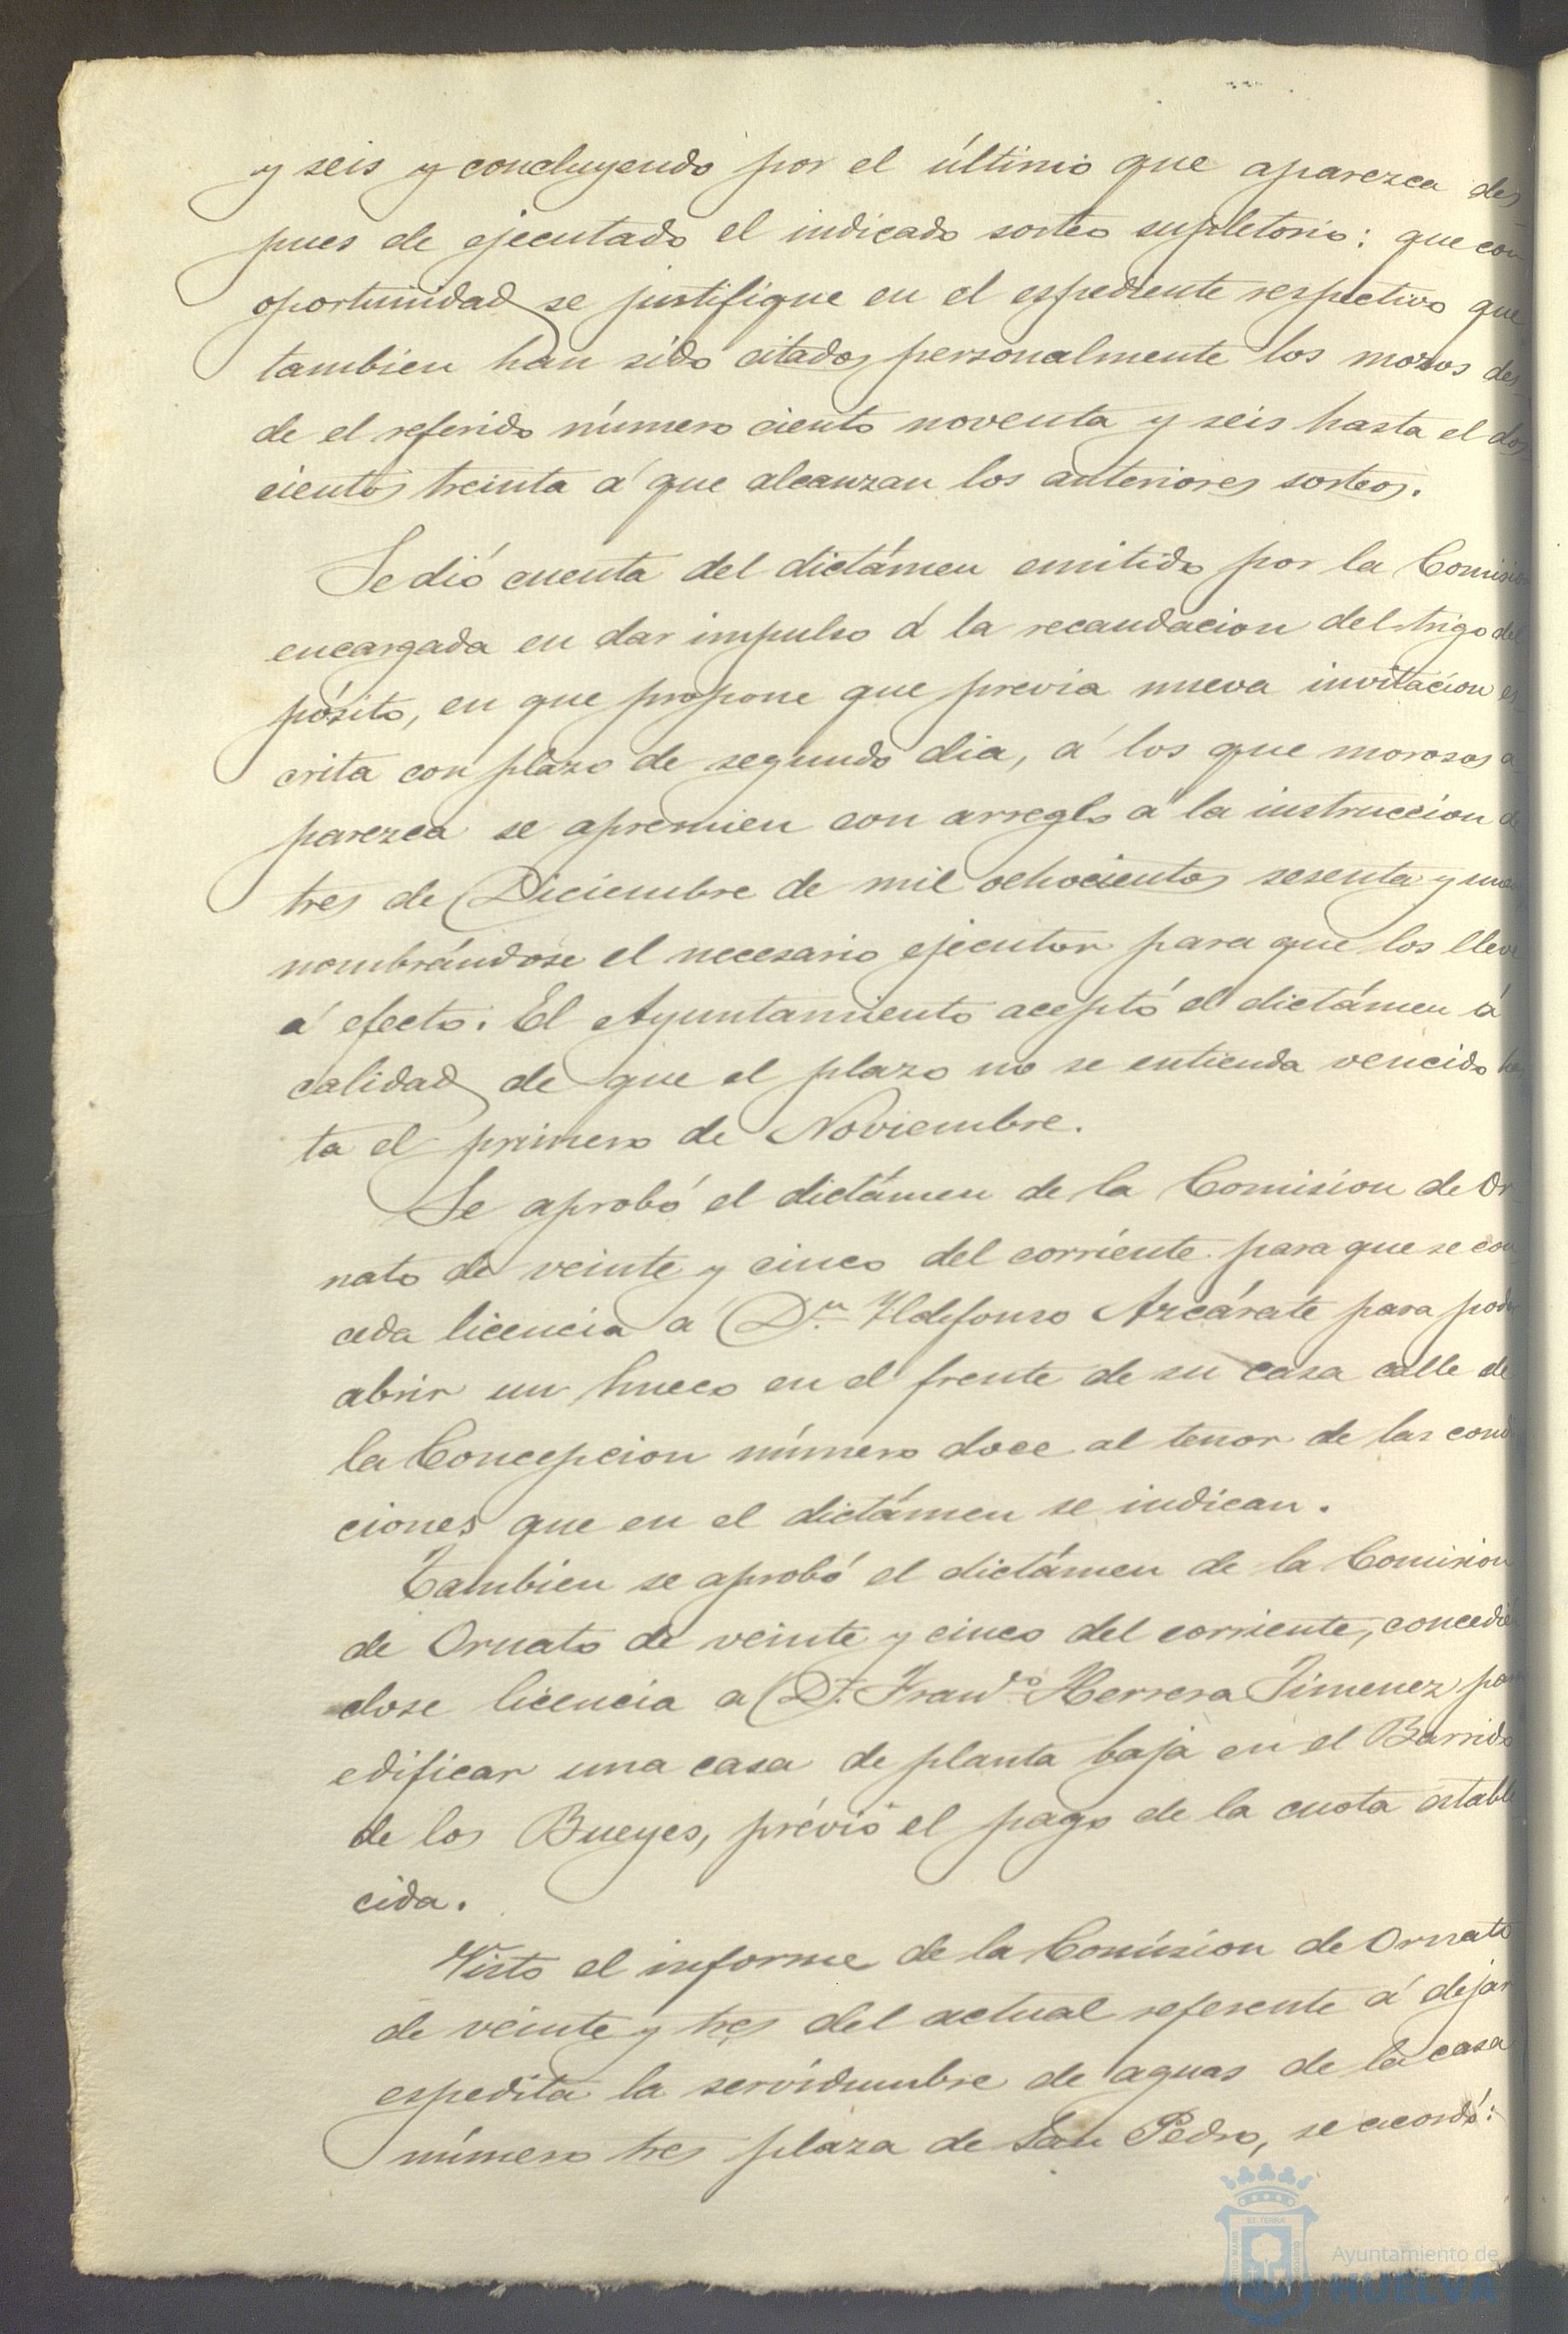 y seis y concluyendo por el último que aparezca des
pues de ejecutado el indicado sorteo supletorio: que con
oportunidad se justifique en el espediente respectivo que
tambien han sido citados personalmente los mozos des
de el referido número ciento noventa y seis hasta el dos
cientos treinta á que alcanzan los anteriores sorteos.
Se dió cuenta del dictámen emitido por la Comision
encargada en dar impulso á la recaudacion del trigo del
pósito, en que propone que previa nueva invitacion es
crita con plazo de segundo dia, á los que morosos a
parezca se apremien con arreglo á la instruccion de
tres de Diciembre de mil ochocientos sesenta y nueve
nombrándose el necesario ejecutor para que los lleve
á efecto. El Ayuntamiento aceptó el dictámen á
calidad de que el plazo no se entienda vencido has
ta el primero de Noviembre.
Se aprobó el dictámen de la Comision de Or
nato de veinte y cinco del corriente para que se con
ceda licencia á D.n Yldefonso Azcárate para poder
abrir un hueco en el frente de su casa calle de
la Concepcion número doce al tenor de las condi
ciones que en el dictámen se indican.
Tambien se aprobó el dictámen de la Comision
de Ornato de veinte y cinco del corriente, concedien
dose licencia a D. Fran.co Herrera Jimenez para
edificar una casa de planta baja en el Barrido
de los Bueyes, prévio el pago de la cuota estable
cida.
Visto el informe de la Comision de Ornato
de veinte y tres del actual referente á dejar
espedita la servidumbre de aguas de la casa
número tres plaza de San Pedro, se acordó:
Ayuntamiento de
HUELVA